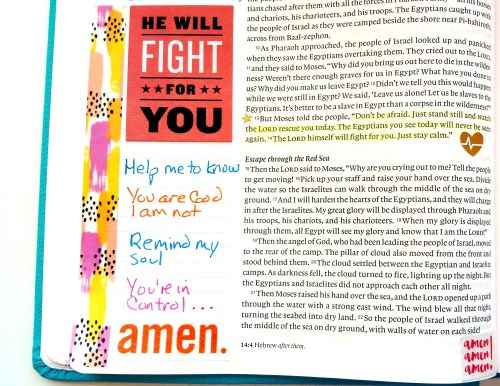 HE WILL
FIGHT
FOR
YOU
Help me to know
You are God
I am not
Remind my
Soul
You're in
Control...
amen.
tians chased after them with all the forces in
and chariots, his charioteers, and his troops. The Egyptians caught up with
the people of Israel as they were camped beside the shore near Pi-hahiroth,
across from Baal-zephon.
10 As Pharaoh approached, the people of Israel looked up and panicked
when they saw the Egyptians overtaking them. They cried out to the LORD,
11 and they said to Moses, “Why did you bring us out here to die in the wilder-
ness? Weren't there enough graves for us in Egypt? What have you done to
us? Why did you make us leave Egypt? 12 Didn't we tell you this would happen
while we were still in Egypt? We said, ‘Leave us alone! Let us be slaves to the
Egyptians. It's better to be a slave in Egypt than a corpse in the wilderness!’”
13 But Moses told the people, “Don't be afraid. Just stand still and watch
the LORD rescue you today. The Egyptians you see today will never be seen
again. 14 The LORD himself will fight for you. Just stay calm.”
Escape through the Red Sea
15 Then the LORD said to Moses, “Why are you crying out to me? Tell the people
to get moving! 16 Pick up your staff and raise your hand over the sea. Divide
the water so the Israelites can walk through the middle of the sea on dry
ground. 17 And I will harden the hearts of the Egyptians, and they will charge
in after the Israelites. My great glory will be displayed through Pharaoh and
his troops, his chariots, and his charioteers. 18 When my glory is displayed
through them, all Egypt will see my glory and know that I am the LORD!”
19 Then the angel of God, who had been leading the people of Israel, moved
to the rear of the camp. The pillar of cloud also moved from the front and
stood behind them. 20 The cloud settled between the Egyptian and Israelite
camps. As darkness fell, the cloud turned to fire, lighting up the night. But
the Egyptians and Israelites did not approach each other all night.
21 Then Moses raised his hand over the sea, and the LORD opened up a path
through the water with a strong east wind. The wind blew all that night,
turning the seabed into dry land. 22 So the people of Israel walked through
the middle of the sea on dry ground, with walls of water on each side!
14:4 Hebrew after them.
amen!
amen!
amen!